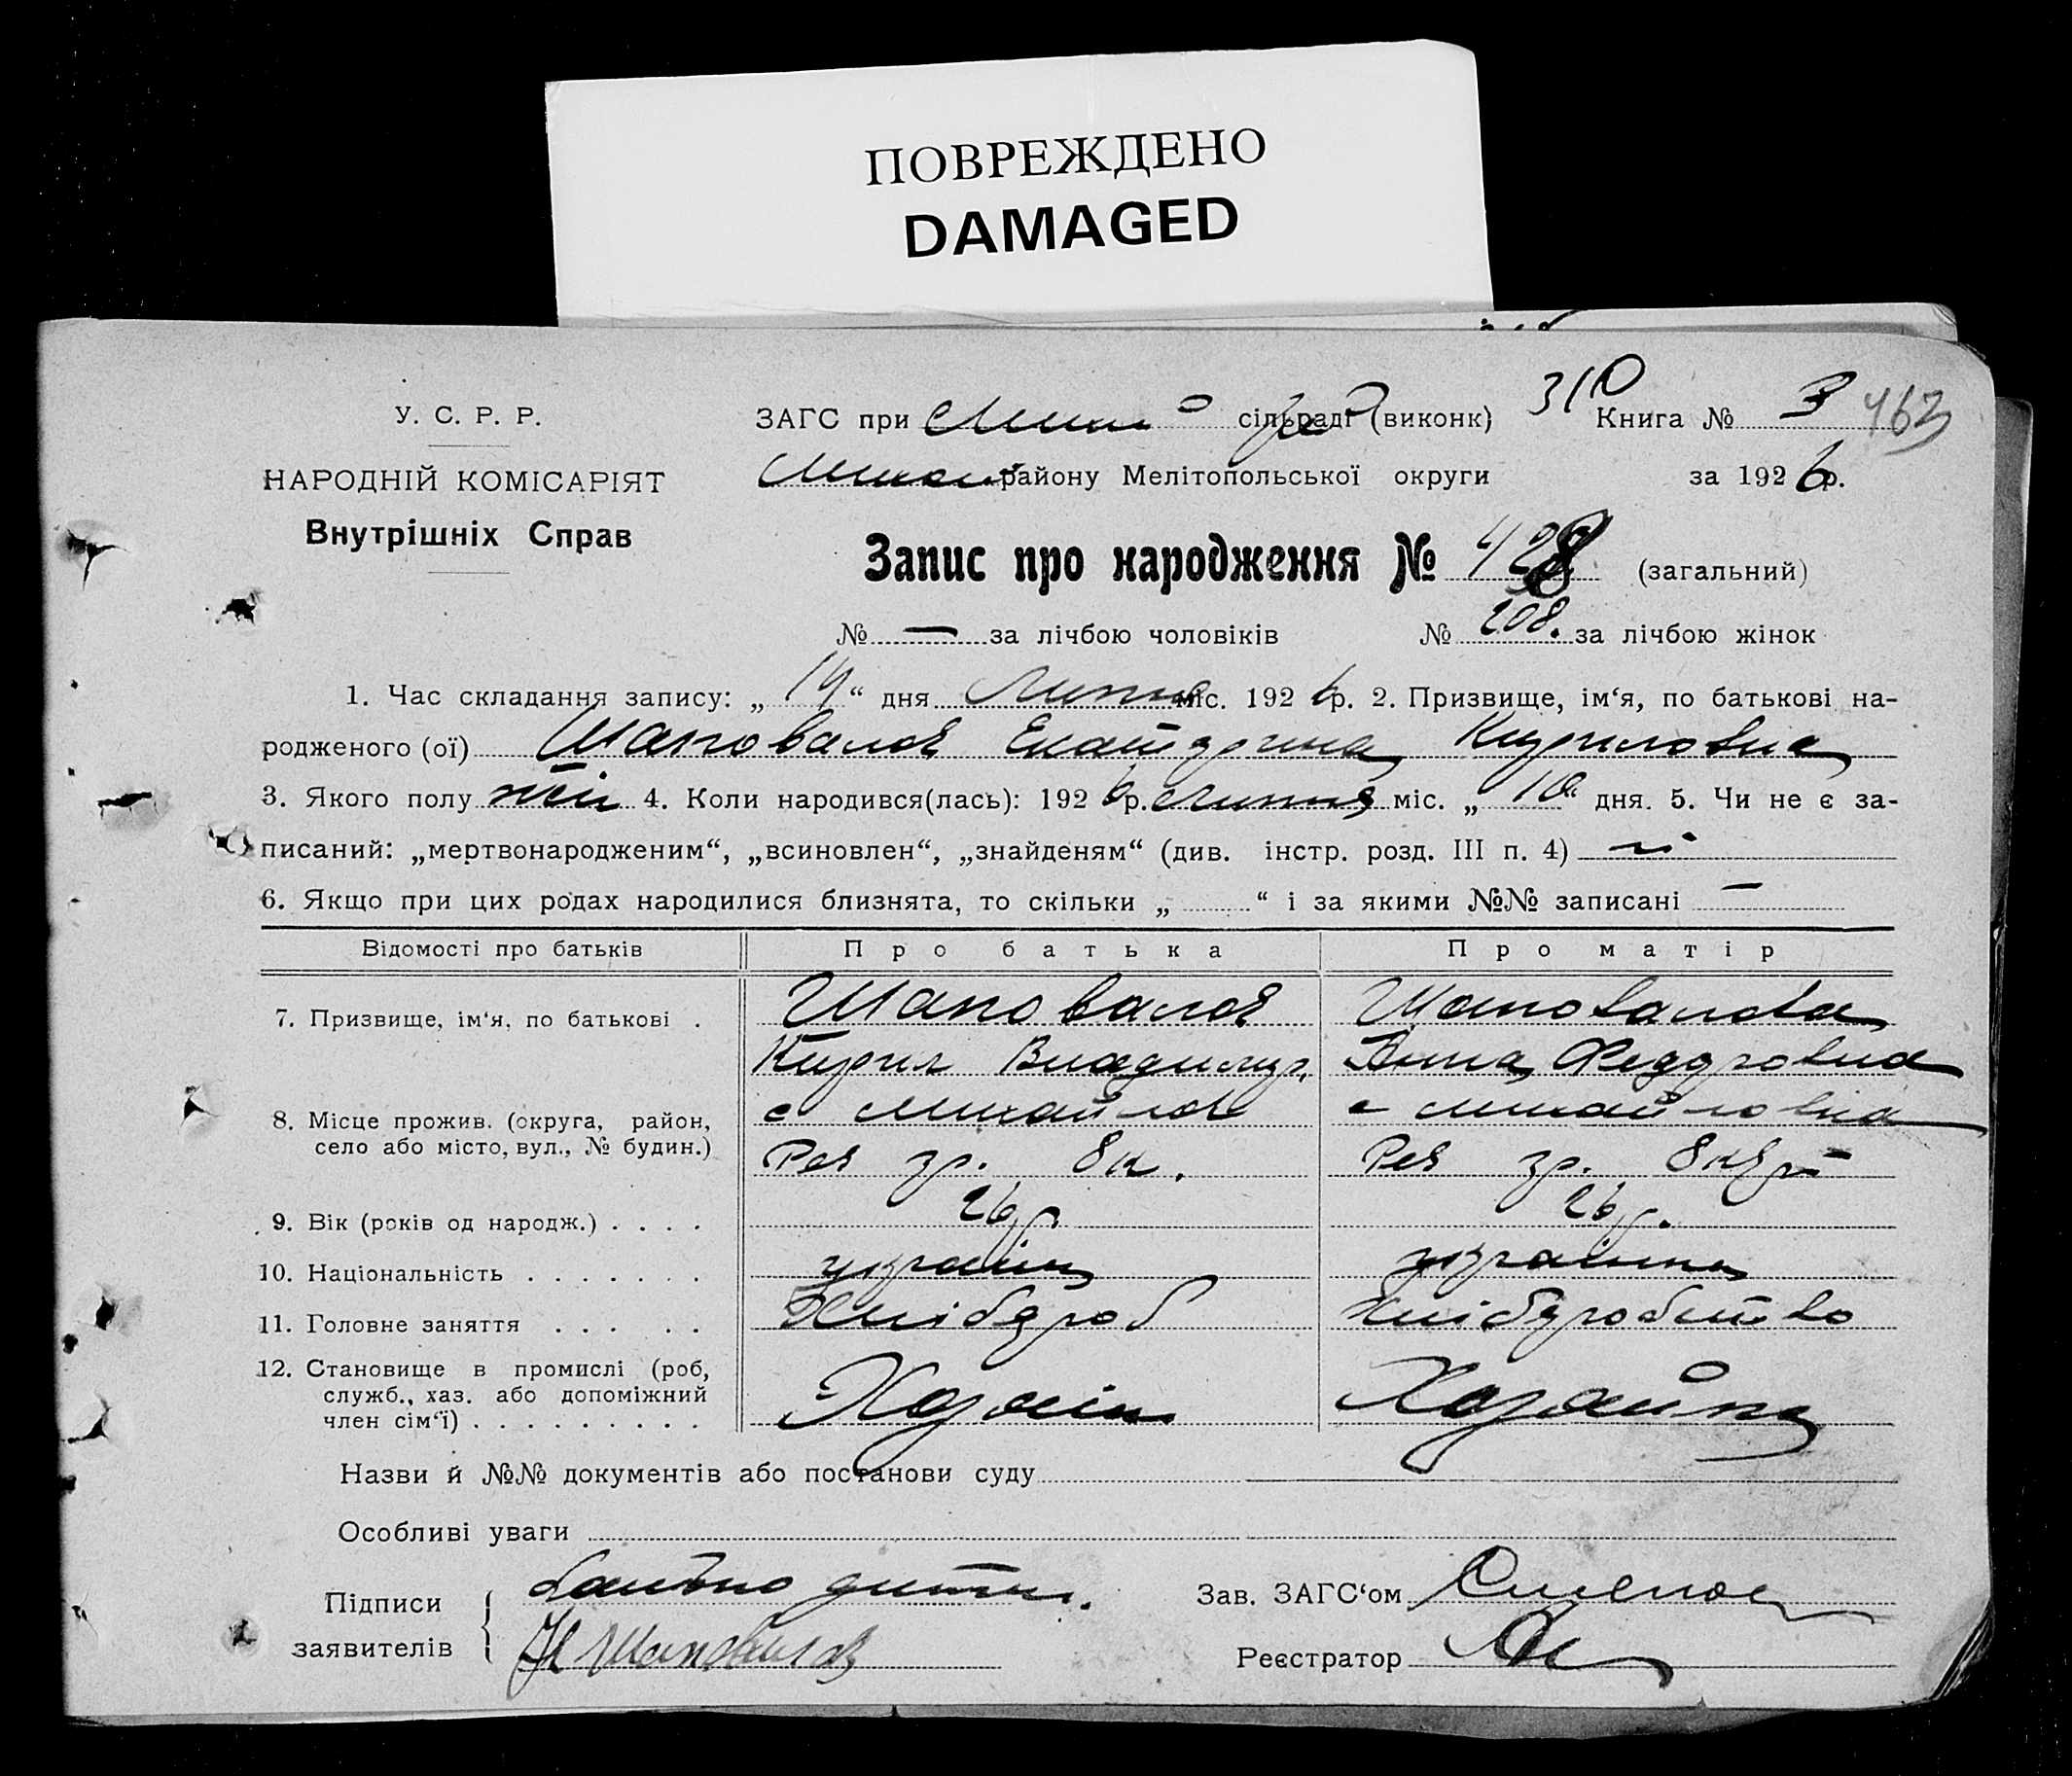 ПОВРЕЖДЕНО
DAMAGED
310
У. С. Р. Р. ЗАГС при сільраді (виконк) Книга № 3 463
НАРОДНІЙ КОМІСАРІЯТ району Мелітопольської округи за 1926 р.
Внутрішніх Справ
Запис про народження № 428 (загальний)
№ — за лічбою чоловіків № 208. за лічбою жінок
1. Час складання запису: „ 14 “ дня Липня міс. 1926 р. 2. Призвище, ім‘я, по батькові на-
родженого (ої) Шаповалов Екатерина Кириловна
3. Якого полу жін 4. Коли народився(лась): 1926 р. Липня міс. „ 10 “ дня. 5. Чи не є за-
писаний: „мертвонародженим“, „всиновлен“, „знайденям“ (див. інстр. розд. III п. 4) ні
6. Якщо при цих родах народилися близнята, то скільки „ “ і за якими №№ записані —
Відомості про батьків Про батька Про матір
7. Призвище, ім‘я, по батькові . Шаповалов Шаповалова
Кирил Владимир. Анна Федоровна
8. Місце прожив. (округа, район, с Михайлов с Михайловка
село або місто, вул., № будин.) Рев гр. 8 к. Рев гр.
9. Вік (років од народж.) . . . . 26 р. 26 р.
10. Національність . . . . . . . українец українка
11. Головне заняття . . . . . Хлібороб хліборобство
12. Становище в промислі (роб,
служб., хаз. або допоміжний Хозяін Хозяйка
член сім‘ї) . . . . . . . . .
Назви й №№ документів або постанови суду
Особливі уваги
Підписи батько дитини. Зав. ЗАГС‘ом
заявителів Шаповалов Реєстратор